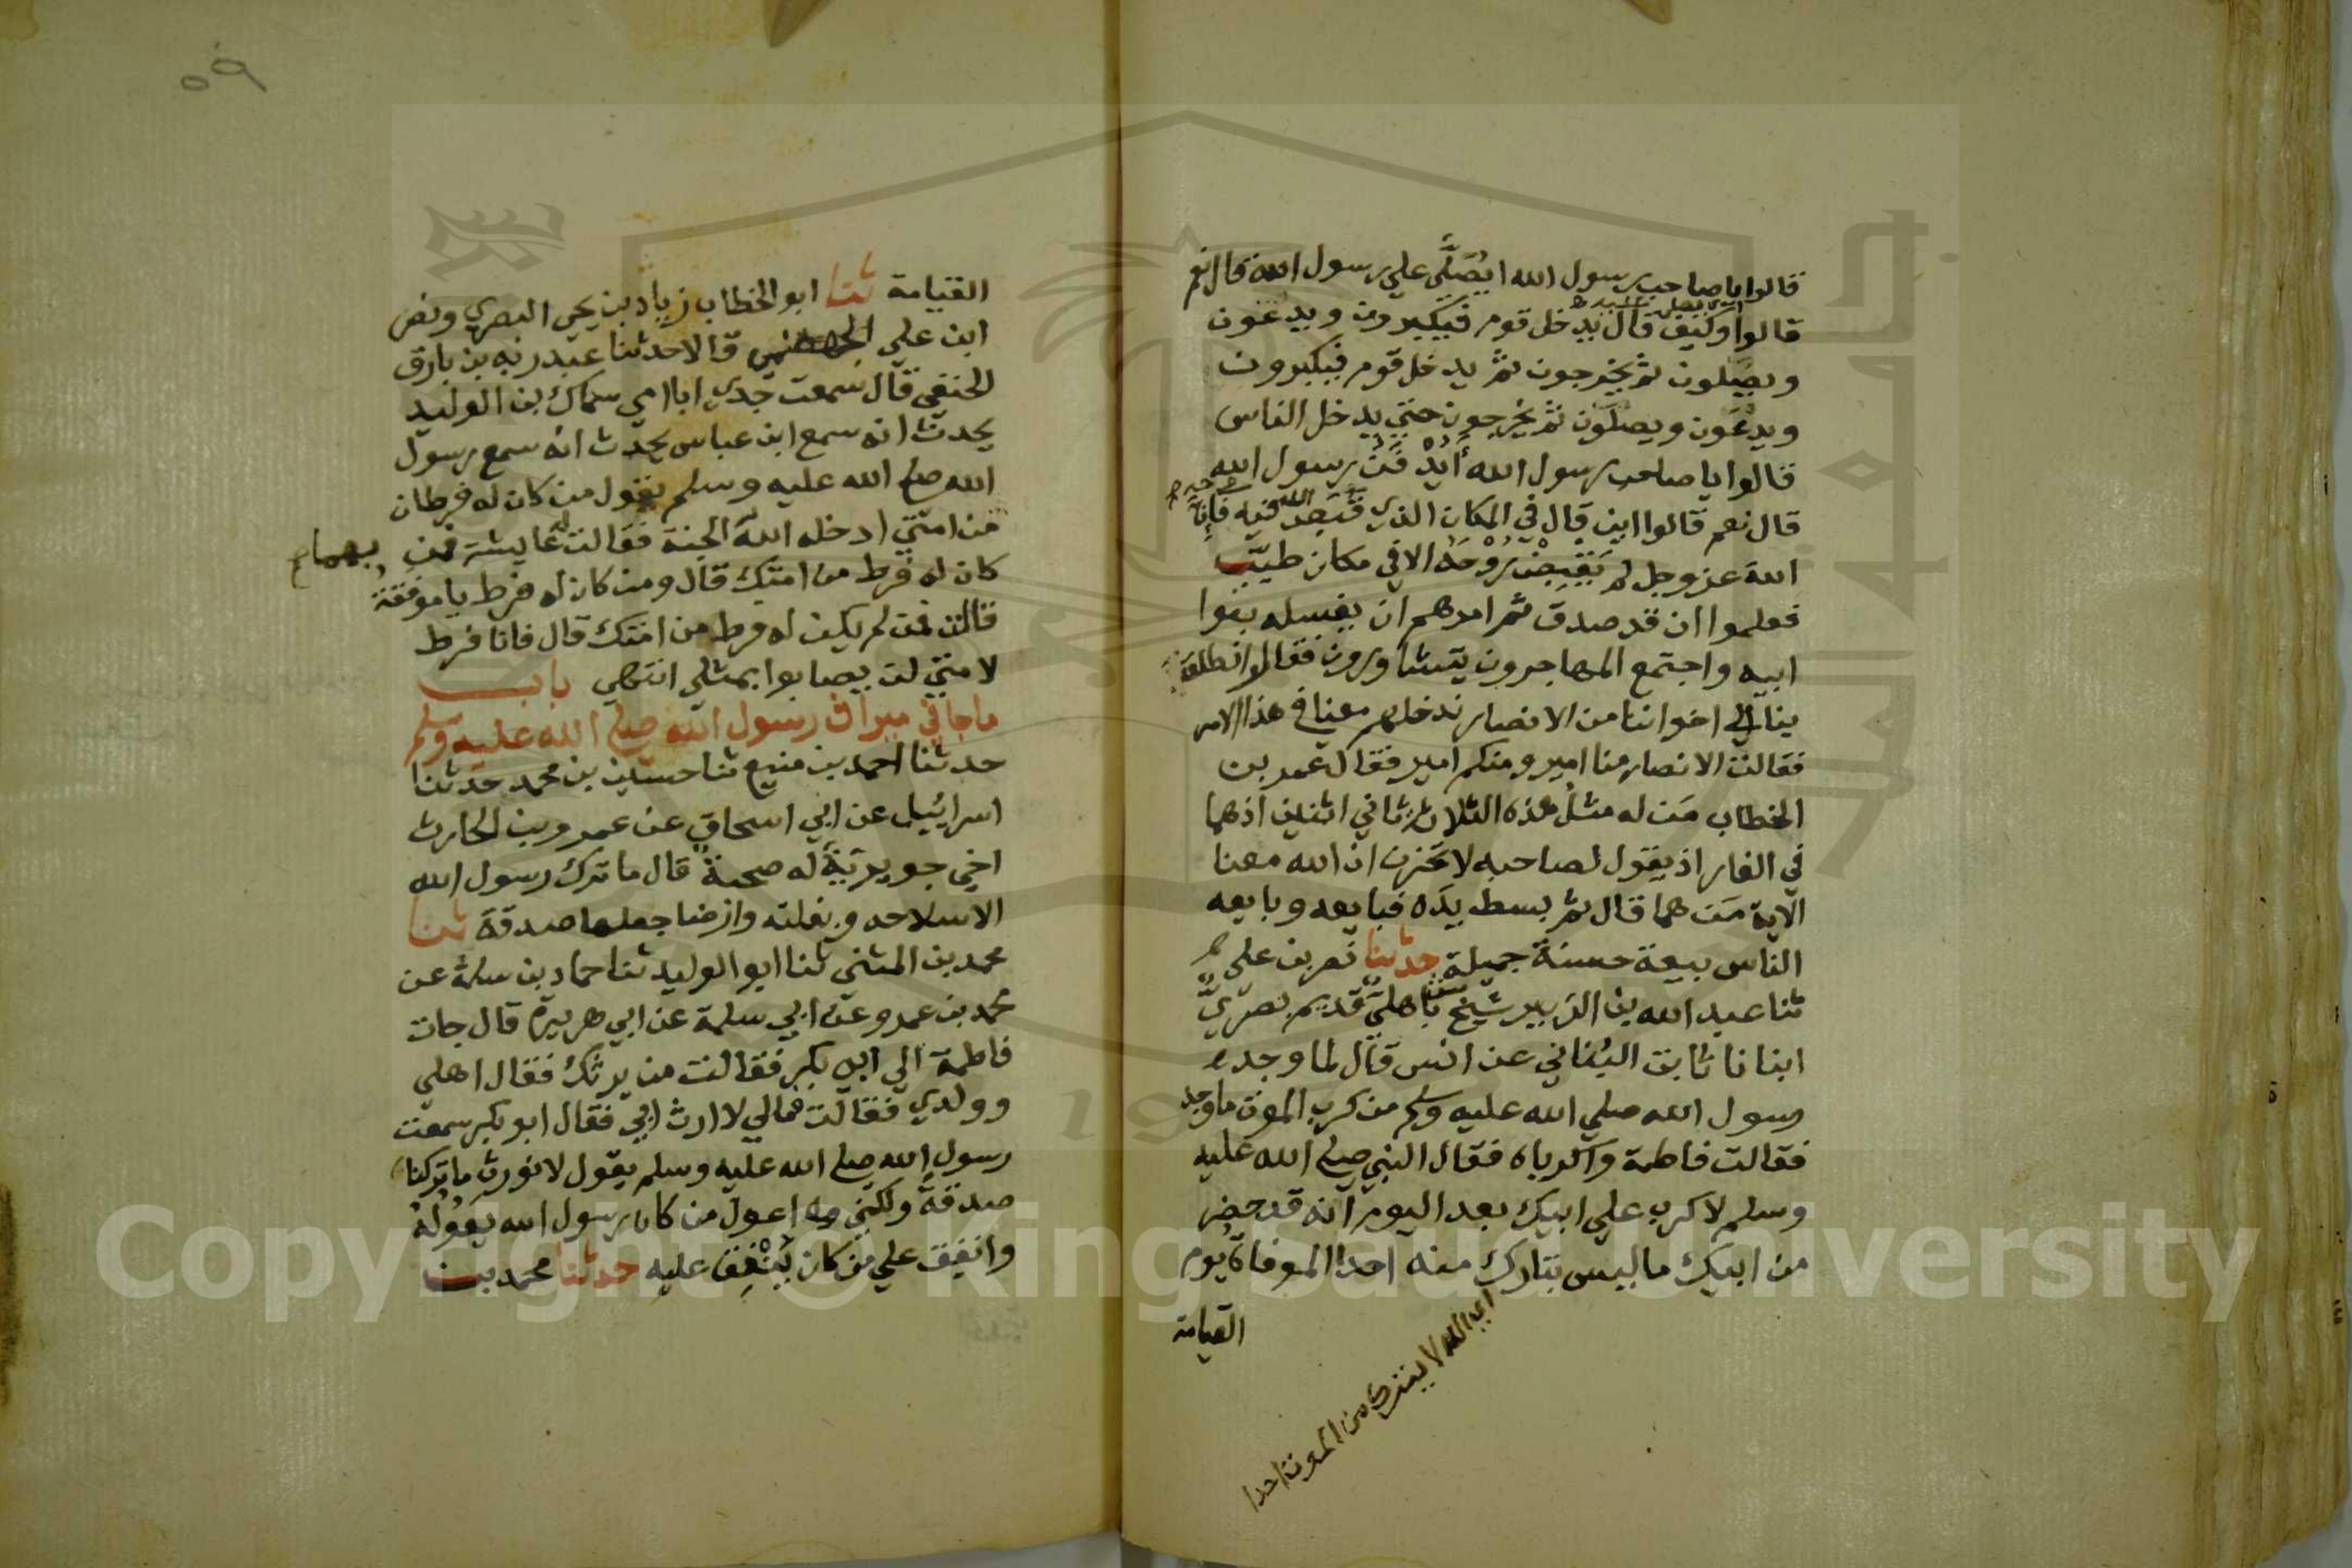 قالوا يا صاحب رسول الله ايُصَلَّى علي رسول الله قال نعم
قالوا وكيف قال يدخل قوم فيكبرون ويدعون
ويصلون ثم يخرجون ثم يدخل قوم فيكبرون
ويدعون ويصلون ثم يخرجون حتي يدخل الناس
قالوا يا صاحب رسول الله أيُدْفَنُ رسول الله
قال نعم قالوا اين قال في المكان الذي قبض الله فيه روحه فإنّ
الله عز وجل لم يقبض روحه الا في مكان طيّب
فعلموا ان قد صدق ثم امرهم ان يغسله بنوا
ابيه واجتمع المهاجرون يتشاورون فقالوا انطلق
بنا الي اخواننا من الانصار ندخلهم معنا في هذا الامر
فقالت الانصار منا امير ومنكم امير فقال عمر بن
الخطاب مَن له مثلُ هذه الثلاث ثاني اثنين اذهما
في الغار اذ يقول لصاحبه لا تحزن ان الله معنا
الآية مَن هما قال ثم بسط يدَه فبايعه وبايعه
الناس بيعة حسنة جميلة حدثنا نصر بن علي
ثنا عبد الله بن الزبير شيخ باهليّ قديم بصريّ
انبانا ثابت البُناني عن انس قال لما وجد
رسول الله صلي الله عليه وسلم من كرب الموت ما وجد
فقالت فاطمة واكرباه فقال النبي صلي الله عليه
وسلم لا كرب علي ابيك بعد اليوم انه قد حضر
من ابيك ما ليس بتارك منه احدا الموفاة يوم
القيامة
اي الله لا يترك من الموت احدا
٥٩
القيامة ثنا ابو الخطاب زياد بن يحي البصري ونصر
ابن علي الجهضمي قالا حدثنا عبد ربه بن بارق
الحنفي قال سمعت جدي ابا امي سماك بن الوليد
يحدث انه سمع ابن عباس يحدث انه سمع رسول
الله صلي الله عليه وسلم يقول من كان له فرطان
من امتي ادخله الله بهما الجنة فقالت عايشة فمن
كان له فرط من امتك قال ومن كان له فرط يا موفقة
قالت فمن لم يكن له فرط من امتك قال فانا فرط
لامتي لن يصابوا بمثلي انتهي باب
ماجا في ميراث رسول الله صلي الله عليه وسلم
حدثنا احمد بن منيع ثنا حسين بن محمد حدثنا
اسرائيل عن ابي اسحاق عن عمرو بن الحارث
اخي جويرية له صحبة قال ما ترك رسول الله
الا سلاحه وبغلته وارضا جعلها صدقة ثنا
محمد بن المثني ثنا ابو الوليد ثنا حماد بن سلمة عن
محمد بن عمرو عن ابي سلمة عن ابي هريرة قال جات
فاطمة الي ابي بكر فقالت من يرثك فقال اهلي
وولدي فقالت فمالي لا ارث ابي فقال ابو بكر سمعت
رسول الله صلي الله عليه وسلم يقول لا نورث ما تركنا
صدقة ولكني اعول من كان رسول الله يَعُولُهُ
وانفق علي من كان يُنْفِق عليه حدثنا محمد بن
Copyright © King Saud University